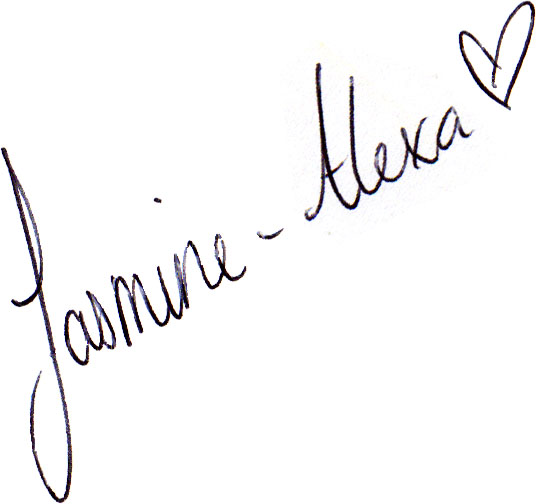 Jasmine-Alexa ♡